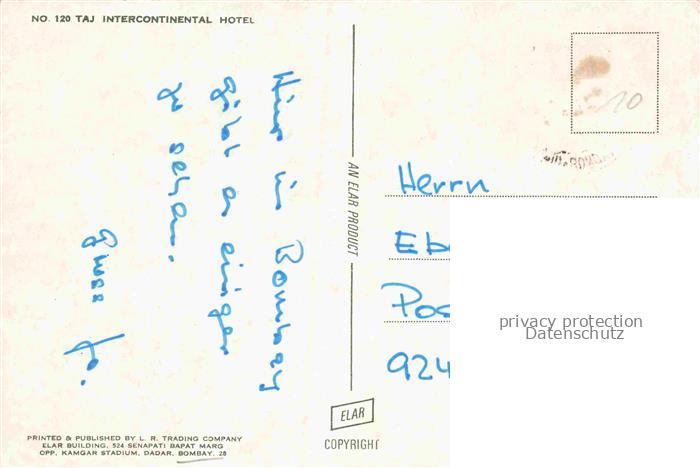 NO. 120 TAJ INTERCONTINENTAL HOTEL
Hier in Bombay
gibt es einiges
zu sehen.
Gruss
PRINTED & PUBLISHED BY L. R. TRADING COMPANY
ELAR BUILDING, 524 SENAPATI BAPAT MARG
OPP. KAMGAR STADIUM, DADAR, BOMBAY. 28
AN ELAR PRODUCT
ELAR
COPYRIGHT
10
Herrn
Eb
Pos
924
privacy protection
Datenschutz